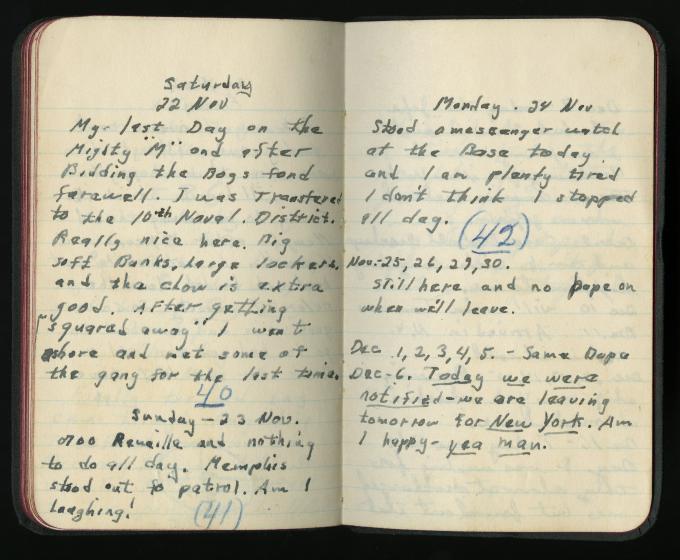 Saturday
22 Nov
My last Day on the
Mighty "M" and after
Bidding the Boys fond
farewell. I was Transfered
to the 10th Naval. District.
Really nice here. Big
soft Bunks, large lockers,
and the chow is extra
good. After getting
"squared away" I went
ashore and met some of
the gang for the last time.
40
Sunday - 23 Nov.
0700 Reveille and nothing
to do all day. Memphis
stood out to patrol. Am I
laughing!
(41)
Monday. 24 Nov
Stood a messenger watch
at the Base today.
and I am plenty tired
I don't think I stopped
all day.
(42)
Nov. 25, 26, 29, 30.
Still here and no Dope on
when we'll leave.
Dec. 1, 2, 3, 4, 5. - Same Dope
Dec - 6. Today we were
notified - we are leaving
tomorrow for New York. Am
I happy - yea man.